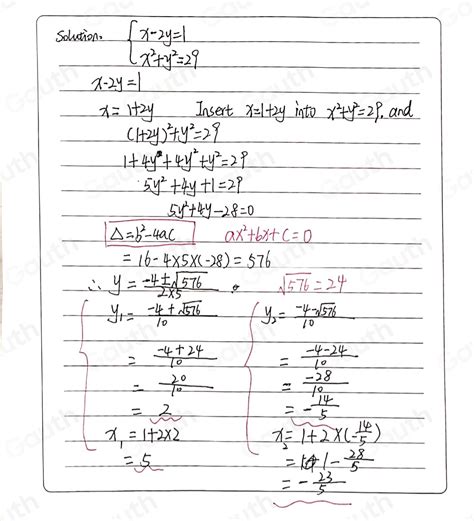 Solution. { x-2y=1
x²+y²=29
x-2y=1
x=1+2y Insert x=1+2y into x²+y²=29. and
(1+2y)²+y²=29
1+4y+4y²+y²=29
5y²+4y+1=29
5y²+4y-28=0
Δ=b²-4ac ax²+bx+c=0
=16-4×5×(-28)=576
∴ y = (-4±√576)/(2×5) . √576=24
y₁ = (-4+√576)/10 y₂ = (-4-√576)/10
= (-4+24)/10 = (-4-24)/10
= 20/10 = -28/10
= 2 = -14/5
x₁ = 1+2×2 x₂ = 1+2×(-14/5)
= 5 = 1-28/5
= -23/5
Gauth